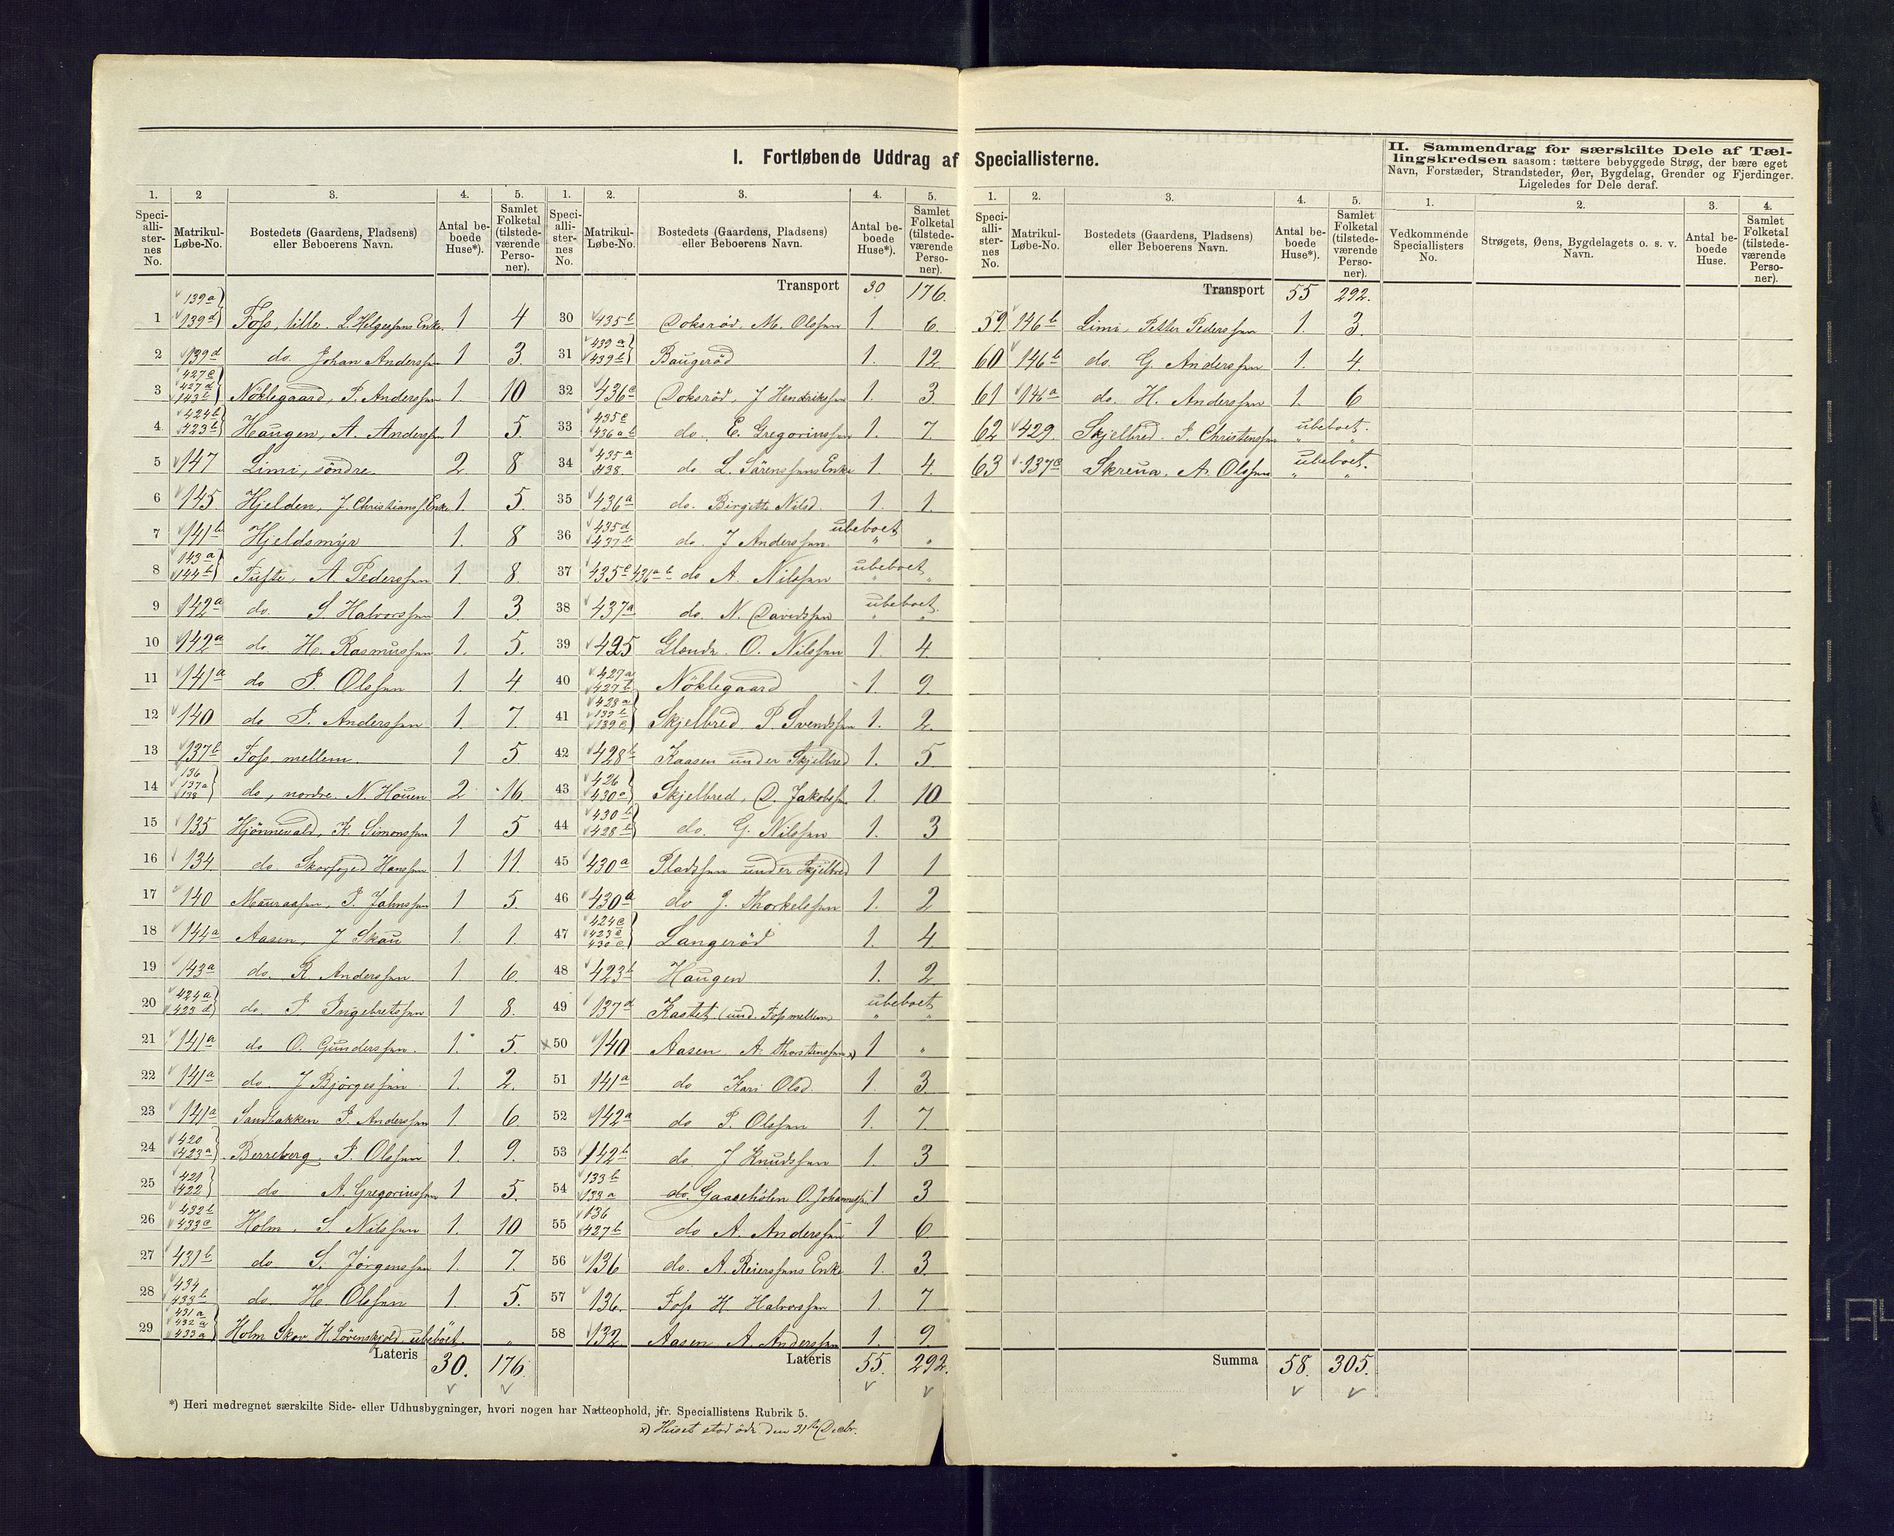 I. Fortløbende Uddrag af Speciallisterne.
II. Sammendrag for særskilte Dele af Tællingskredsen saasom: tættere bebyggede Strøg, der bære eget
Navn, Forstæder, Strandsteder, Øer, Bygdelag, Grender og Fjerdinger.
Ligeledes for Dele deraf.
1. 2 3. 4. 5.
Speciallisternes No. Matrikul-Løbe-No. Bostedets (Gaardens, Pladsens) eller Beboerens Navn. Antal beboede Huse*). Samlet Folketal (tilstedeværende Personer).
1 139a 139d Foss lille. L. Helgesens Enke. 1 4
2 139d do. Johan Anderssen 1 3
3 427c 427d 143b Nöklegaard, P. Anderssen 1 10
4 424b 423b Haugen, A. Anderssen 1 5.
5 147 Limi, söndre 2 8
6 145 Hjelden, J. Christians. Enke 1. 5.
7 141b Hjeldsmyr 1. 8
8 143a 144b Tufte, A Pederssen 1 8.
9 142a do. S. Halvorssen 1. 3.
10 142a do. H. Rasmussen 1. 5.
11 141a do P. Olssen 1. 4
12 140 do P. Anderssen 1. 7.
13 137b Foss mellem. 1 5
14 136 137a 138 do, nordre. N. Houen 2 16.
15 135 Hjönnevald, K. Simonssen 1 5
16 134. do. Hanssen 1 11.
17 140 Mauraasen, P. Jahnssen 1 5.
18 144a Aasen, J Skau 1. 1.
19 143a do. R Anderssen 1 6.
20 424a 423d do. P Ingebretsen 1 8.
21 141a do O. Gunderssen. 1. 5.
22 141a do. J Bjørgessen 1. 2.
23 141a Sandbakken P. Anderssen 1 6.
24 420 423a Berreberg, P. Olssen 1. 9.
25 421 422 do A. Gregoriussen 1 5.
26 432b 433c Holm, S. Nilssen 1. 10
27 431b do S. Jørgenssen 1. 7.
28 434 433b do. H. Olssen 1. 5.
29 431a 432a 433a Holm Skov H. Lövenskjold, ubeböet. "
Lateris 30. 176.
1. 2. 3. 4. 5.
Speciallisternes No. Matrikul-Løbe-No. Bostedets (Gaardens, Pladsens) eller Beboerens Navn. Antal beboede Huse*). Samlet Folketal (tilstedeværende Personer).
Transport 30 176.
30 435b Doksröd, M. Olssen 1. 6.
31 439a 439b Baugeröd 1. 12.
32 436c Doksröd, J Hendrikssen 1. 3.
33 435c 436ab do. E. Gregoriussen 1. 7.
34 435a 438 do L. Sörenssens Enke 1 4.
35 436a do. Birgitte Nilsd. 1. 1.
36 435d 437b do. J Anderssen. ubeboet " "
37 435c 436a b do A. Nilssen ubeboet " "
38 437a do. N. Davidssen ubeboet. " "
39 425 O. Nilssen 1. 4.
40 427a 427b Nöklegaard 1. 9.
41 428a 139c Skjelbred P. Svendssen 1. 2.
42 428b Kaasen under Skjelbred 1. 5
43 426 430a Skjelbred, D. Jakobss. 1. 10
44 430b 428b do. G. Nilssen 1. 3
45 430a Pladssen under Skjelbred 1 1
46 430a do J. Thorkelssen 1. 2
47 424c 423c 430c Langeröd 1. 4.
48 423b Haugen 1. 2
49 137d Kastet (und. Foss mellem) ubeboet " "
x50 140 Aasen A. Thorstenssen x) 1 "
51 141a do Kari Olsd. 1. 3.
52 142a do P. Olssen 1. 7.
53 142b do. J Knudssen 1. 3
54 133b 133a do. Gaaseholen O. Johannes. 1 3
55 136 427b do A. Anderssen 1 6
56 136 do. A. Reierssens Enke 1. 3.
57 136. Foss H Halvorssen 1. 7
58 132. Aasen A. Anderssen 1. 9.
Lateris 55. 292.
1. 2. 3. 4. 5.
Speciallisternes No. Matrikul-Løbe-No. Bostedets (Gaardens, Pladsens) eller Beboerens Navn. Antal beboede Huse*). Samlet Folketal (tilstedeværende Personer).
Transport 55 292.
59. 146b Limi, Petter Pederssen 1. 3.
60 146b do. G. Anderssen 1. 4.
61 146a do. H. Anderssen 1. 6
62 429. Skjelbred. P. Christenssen ubeboet. " "
63 137c Skreua, A. Olssen ubeboet. " "
Summa 58. 305.
1. 2. 3. 4.
Vedkommende Speciallisters No. Strøgets, Øens, Bygdelagets o. s. v. Navn. Antal beboede Huse. Samlet Folketal (tilstedeværende Personer).
*) Heri medregnet særskilte Side- eller Udhusbygninger, hvori nogen har Natteophold, jfr. Speciallistens Rubrik 5.
x) Huset stod öde den 31te Decbr.